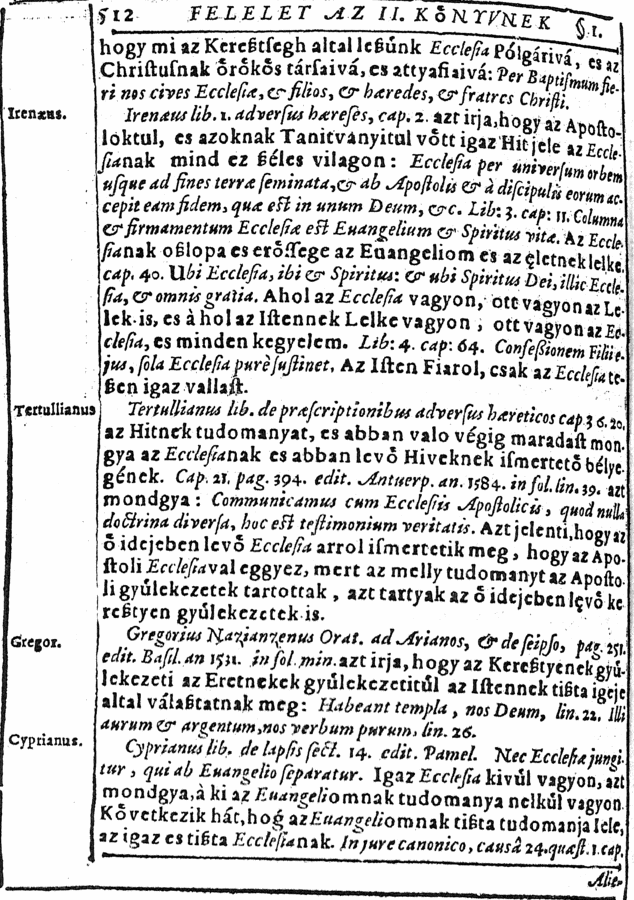 512 FELELET AZ II. KȎNYVNEK §.1.
hogy mi az Kereßtſegh altal leßúnk Eccleſia Pólgárivá, es az
Chriſtuſnak ȍrȍkȍs tárſaivá, es attyafiaivá: Per Baptiſmum fie-
ri nos cives Eccleſiæ, & filios, & hæredes, & fratres Chriſti.
Irenæus.
Irenæus lib. 1. adverſus hæreſes, cap. 2. azt irja, hogy az Apoſto-
loktul, es azoknak Tanitványitul vȍtt igaz Hit jele az Eccle-
ſianak mind ez ßéles vilagon: Eccleſia per univerſum orbem
uſque ad fines terræ ſeminata, & ab Apoſtolis & à diſcipulis eorum ac-
cepit eam fidem, quæ eſt in unum Deum, &c. Lib: 3. cap: 11. Columna
& firmamentum Eccleſiæ eſt Euangelium & Spiritus vitæ. Az Eccle-
ſianak oßlopa es erȍſſege az Euangeliom es az életnek lelke.
cap. 40. Ubi Eccleſia, ibi & Spiritus: & ubi Spiritus Dei, illic Eccle-
ſia, & omnis gratia. Ahol az Eccleſia vagyon, ott vagyon az Le-
lek is, es à hol az Iſtennek Lelke vagyon, ott vagyon az Ec-
cleſia, es minden kegyelem. Lib: 4. cap: 64. Confeßionem Filii e-
jus, ſola Eccleſia purè ſuſtinet. Az Iſten Fiarol, csak az Eccleſia te-
ßen igaz vallaſt.
Tertullianus
Tertullianus lib. de præſcriptionibus adverſus hæreticos cap 3 6. 20.
az Hitnek tudomanyat, es abban valo végig maradaſt mon-
gya az Eccleſianak es abban levȍ Hiveknek iſmertetȍ bélye-
gének. Cap. 21. pag. 394. edit. Antuerp. an. 1584. in fol. lin. 39. azt
mondgya: Communicamus cum Eccleſiis Apoſtolicis, quod nulla
doctrina diverſa, hoc eſt teſtimonium veritatis. Azt jelenti, hogy az
ȍ idejeben levȍ Eccleſia arrol iſmertetik meg, hogy az Apo-
ſtoli Eccleſiaval eggyez, mert az melly tudomanyt az Apoſto-
li gyúlekezetek tartottak, azt tartyak az ȍ idejeben lęvȍ ke-
reßtyen gyúlekezetek is.
Gregor.
Gregorius Nazianzenus Orat. ad Arianos, & de ſeipſo, pag. 251.
edit. Baſil. an 1531. in fol. min. azt irja, hogy az Kereßtyenek gyú-
lekezeti az Eretnekek gyúlekezetitúl az Iſtennek tißta igeje
altal válaßtatnak meg: Habeant templa, nos Deum, lin. 22. Illi
aurum & argentum, nos verbum purum, lin. 26.
Cyprianus.
Cyprianus lib. de lapſis ſect. 14. edit. Pamel. Nec Eccleſiæ jungi-
tur, qui ab Euangelio ſeparatur. Igaz Eccleſia kivúl vagyon, azt
mondgya, à ki az Euangeliomnak tudomanya nelkúl vagyon.
Kȍvetkezik hát, hoǵ az Euangeliomnak tißta tudomanja Iele,
az igaz es tißta Eccleſianak. In jure canonico, causâ 24. quæſt. 1. cap.
Alie-